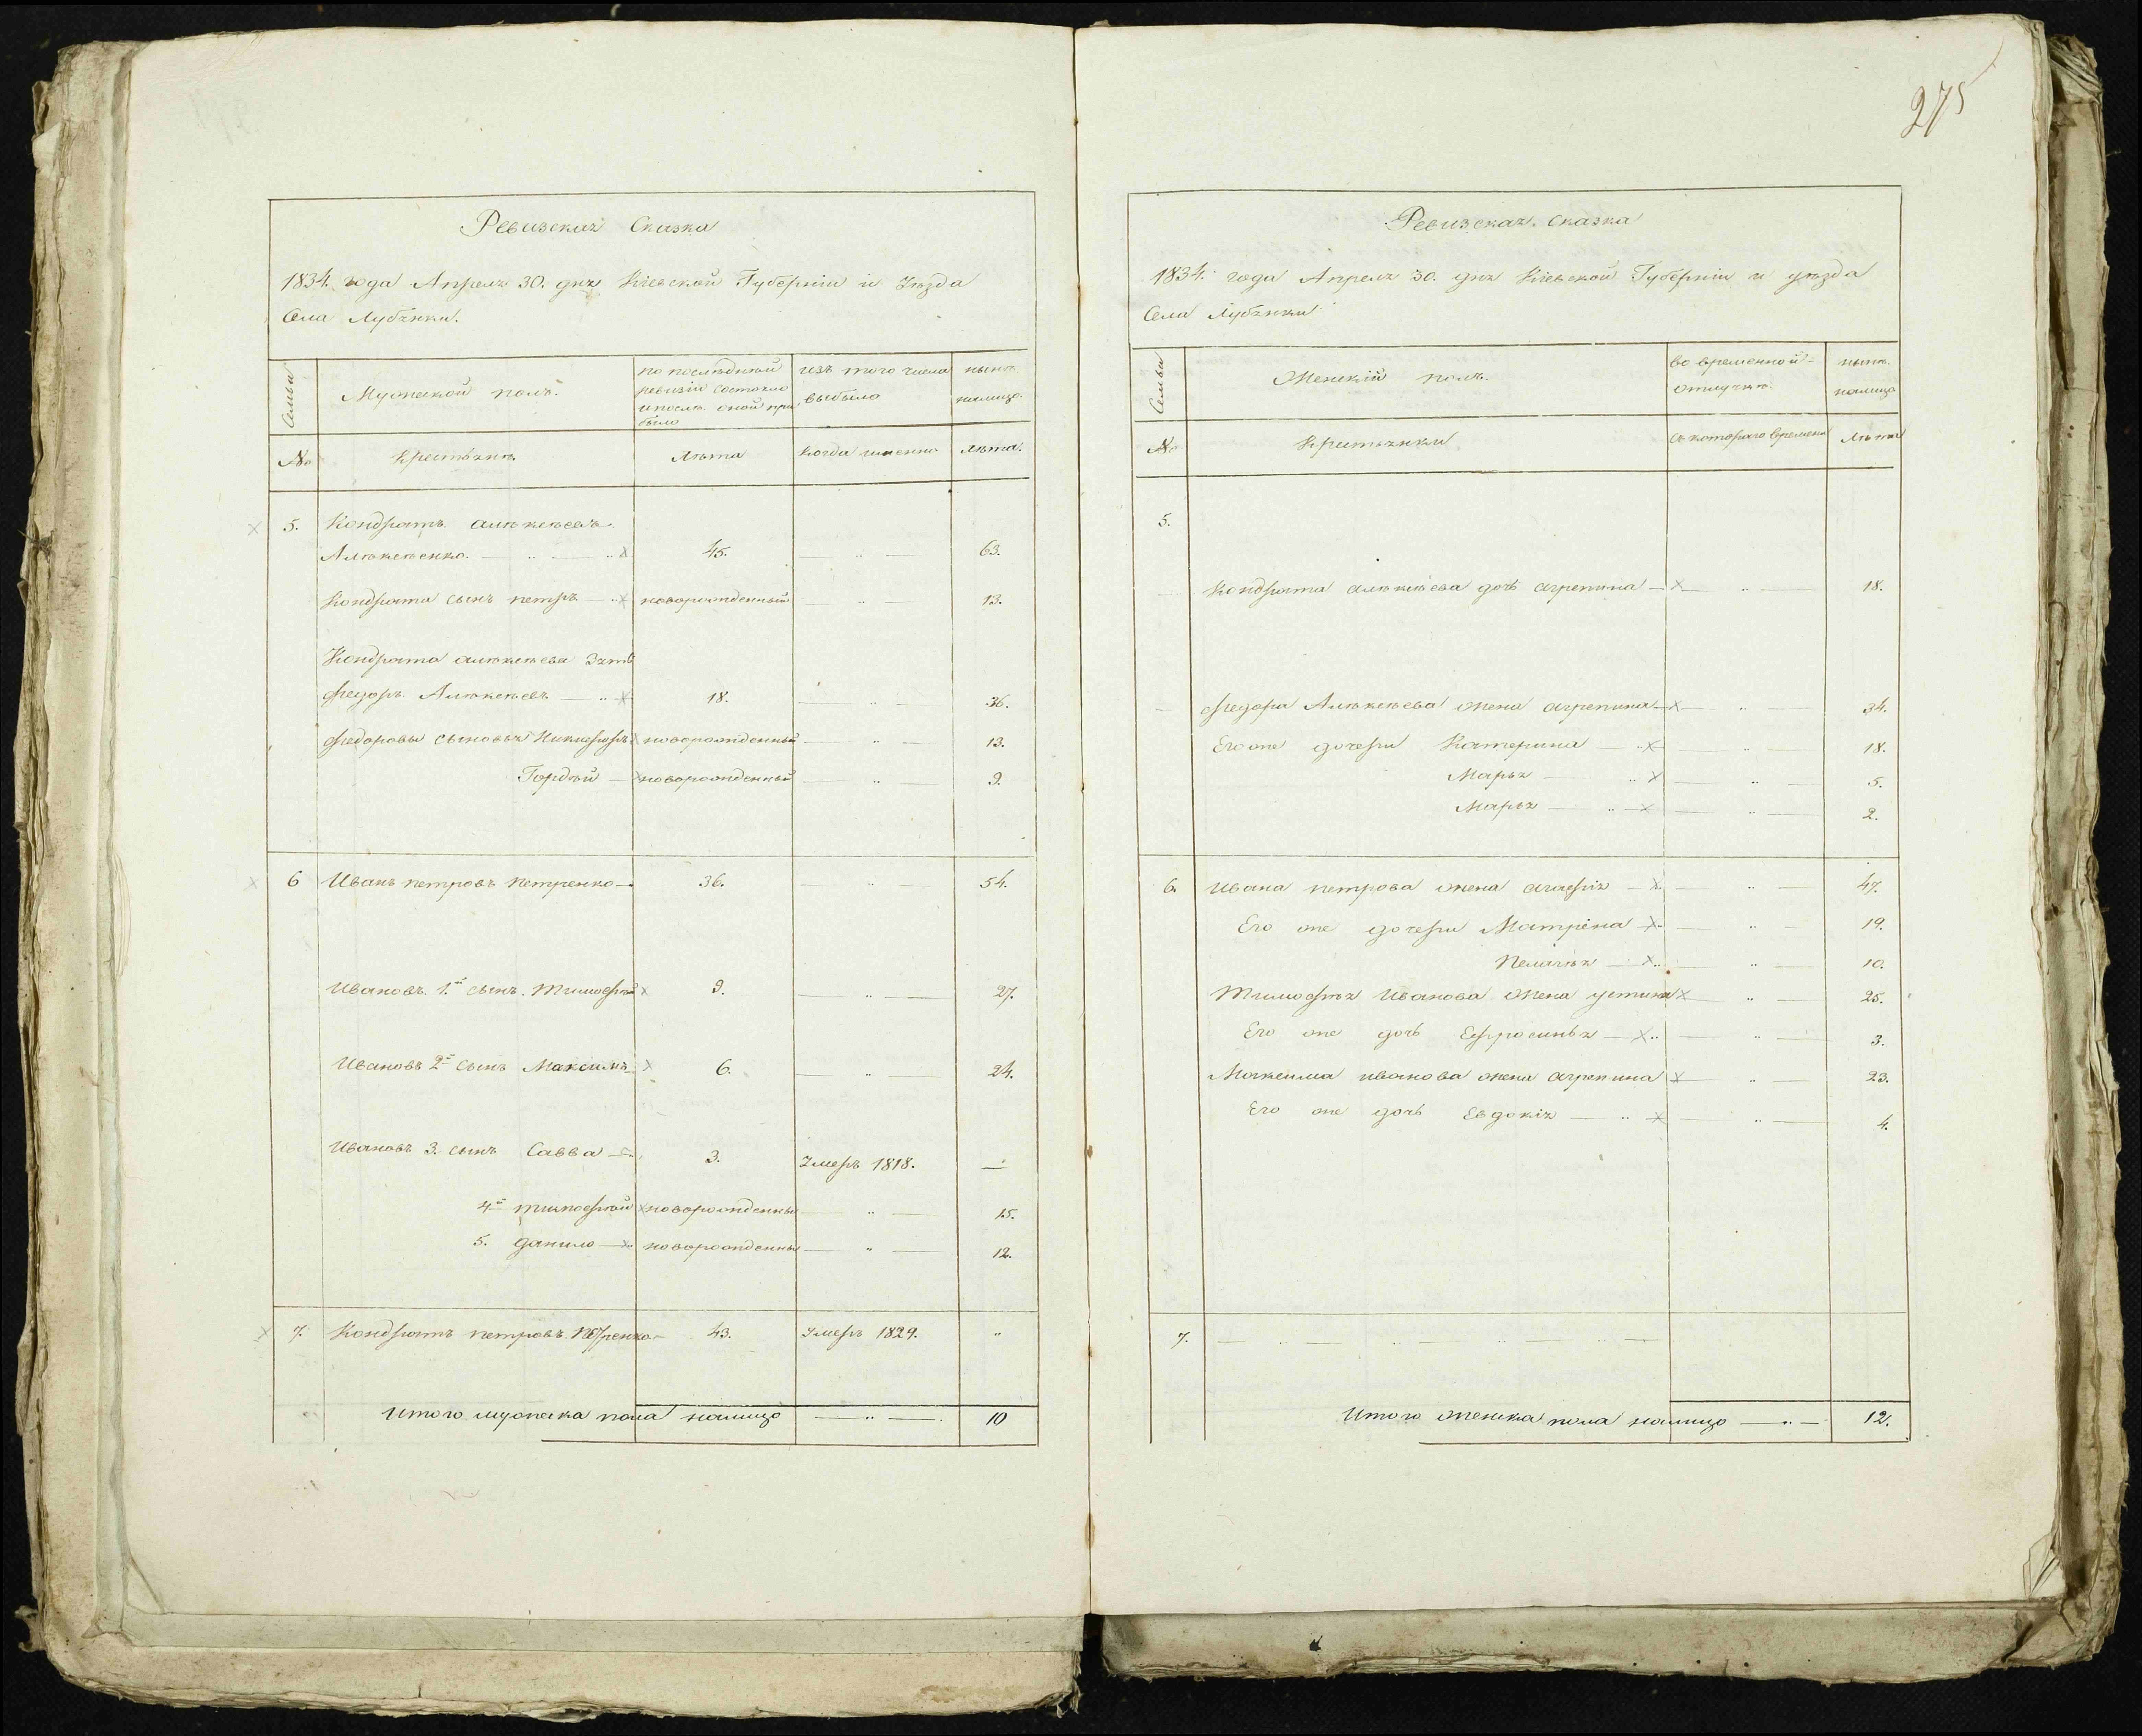 275
Ревизская Сказка
1834. года Апреля 30. дня Кіевской Губерніи и Уѣзда
Села Лубянки.
Семьи
Мужеской полъ.
по послѣдней ревизіи состояло и послѣ оной прибыло
изъ того числа выбыло
нынѣ налицо
№
Крестьяне
Лѣта
Когда именно
Лѣта.
5. Кондратъ Алѣксѣевъ
Алѣксѣенко 45. 63.
Кондрата сынъ петръ новорожденный 13.
Кондрата алѣксѣева Зять
Федоръ Алѣксѣевъ 18. 36.
Федоровы сыновья Никифоръ новорожденный 13.
Гордѣй новорожденный 9.
6 Иванъ петровъ петренко 36. 54.
Ивановъ 1й сынъ Тимофѣй 9. 27.
Ивановъ 2й сынъ Максимъ 6. 24.
Ивановъ 3. сынъ Савва 3. Умеръ 1818.
4й тимофѣй новорожденны 15.
5. данило новорожденны 12.
7. Кондратъ петровъ Петренко 43. Умеръ 1829.
Итого мужеска пола налицо 10
Ревизская Сказка
1834. года Апреля 30. дня Кіевской Губерніи и уѣзда
Села Лубянки
Семьи
Женскій полъ.
во временной отлучкѣ.
нынѣ. налицо
№
Крестьянки
съ котораго времени
Лѣта
5.
Кондрата алѣксѣева дочь агрепина 18.
Федора Алѣксѣева жена агрепина 34.
Его же дочери Катерина 18.
Марья 5.
Марья 2.
6. Ивана петрова жена агафія 47.
Его же дочери Матрѣна 19.
Пелагѣя 10.
Тимофѣя Иванова жена устина 25.
Его же дочь Ефросинья 3.
Максима иванова жена агрепина 23.
Его же дочь Евдокія 4.
7.
Итого женска пола налицо 12.